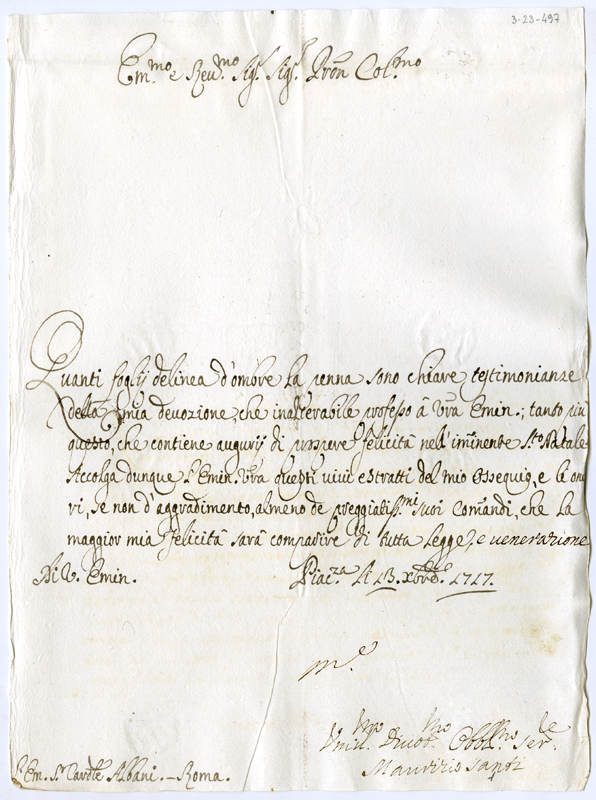 3-23-497
Em.mo e Reu.mo Sig.r Sig.r Pron Col.mo
Quanti foglij delinea d'ombre la penna sono chiare testimonianze
della mia deuozione, che inalterabile professo â Vra Emin.; tanto più
questo, che contiene augurij di prospere felicitâ nell'imminente S.to Natale
Accolga dunque l'Emin. Vra questi uiui estratti del mio Ossequio, e li ono
ri, se non d'aggradimento, almeno de preggiatiss.mi suoi Comandi, che la
maggior mia felicitâ sarâ comparire di tutta legge, e uenerazione
Di V. Emin. Piac.za li 13. Xbre 1717.
Vmil.mo Diuot.mo Obbl.mo Ser.le
Maurizio Santi
Em. S.r Card.le Albani. - Roma.